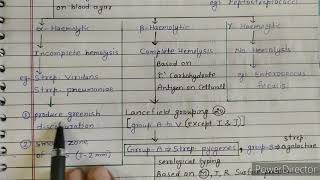 on blood agar
eg: Peptostreptococci
α- Haemolytic
β- Haemolytic
γ- Haemolytic
Incomplete hemolysis
Complete Hemolysis
No Hemolysis
eg: Strep. Viridans
Strep. pneumoniae
Based on
'C' Carbohydrate
Antigen on Cellwall
eg: Enterococcus
① produce greenish
discolouration
Lancefield grouping 20
[group A to V (except I & J)]
② small zone
of (1-2 mm)
Group-A → Strep pyogenes, group-B → strep agalactiae
serological typing
Based on M, T, R Surf
PowerDirector